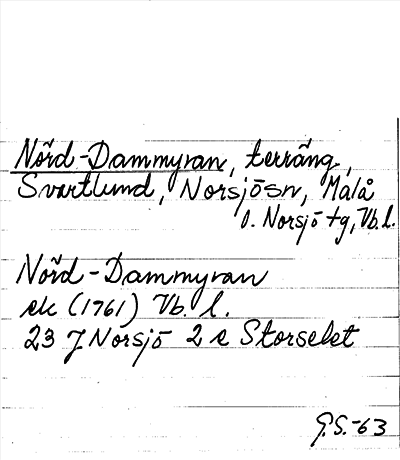 Nörd-Dammyran, terräng,
Svartlund, Norsjösn, Malå
o. Norsjö tg, Vb. l.
Nörd-Dammyran
ek (1761) Vb. l.
23 J Norsjö 2 e Storselet
G.S.-63